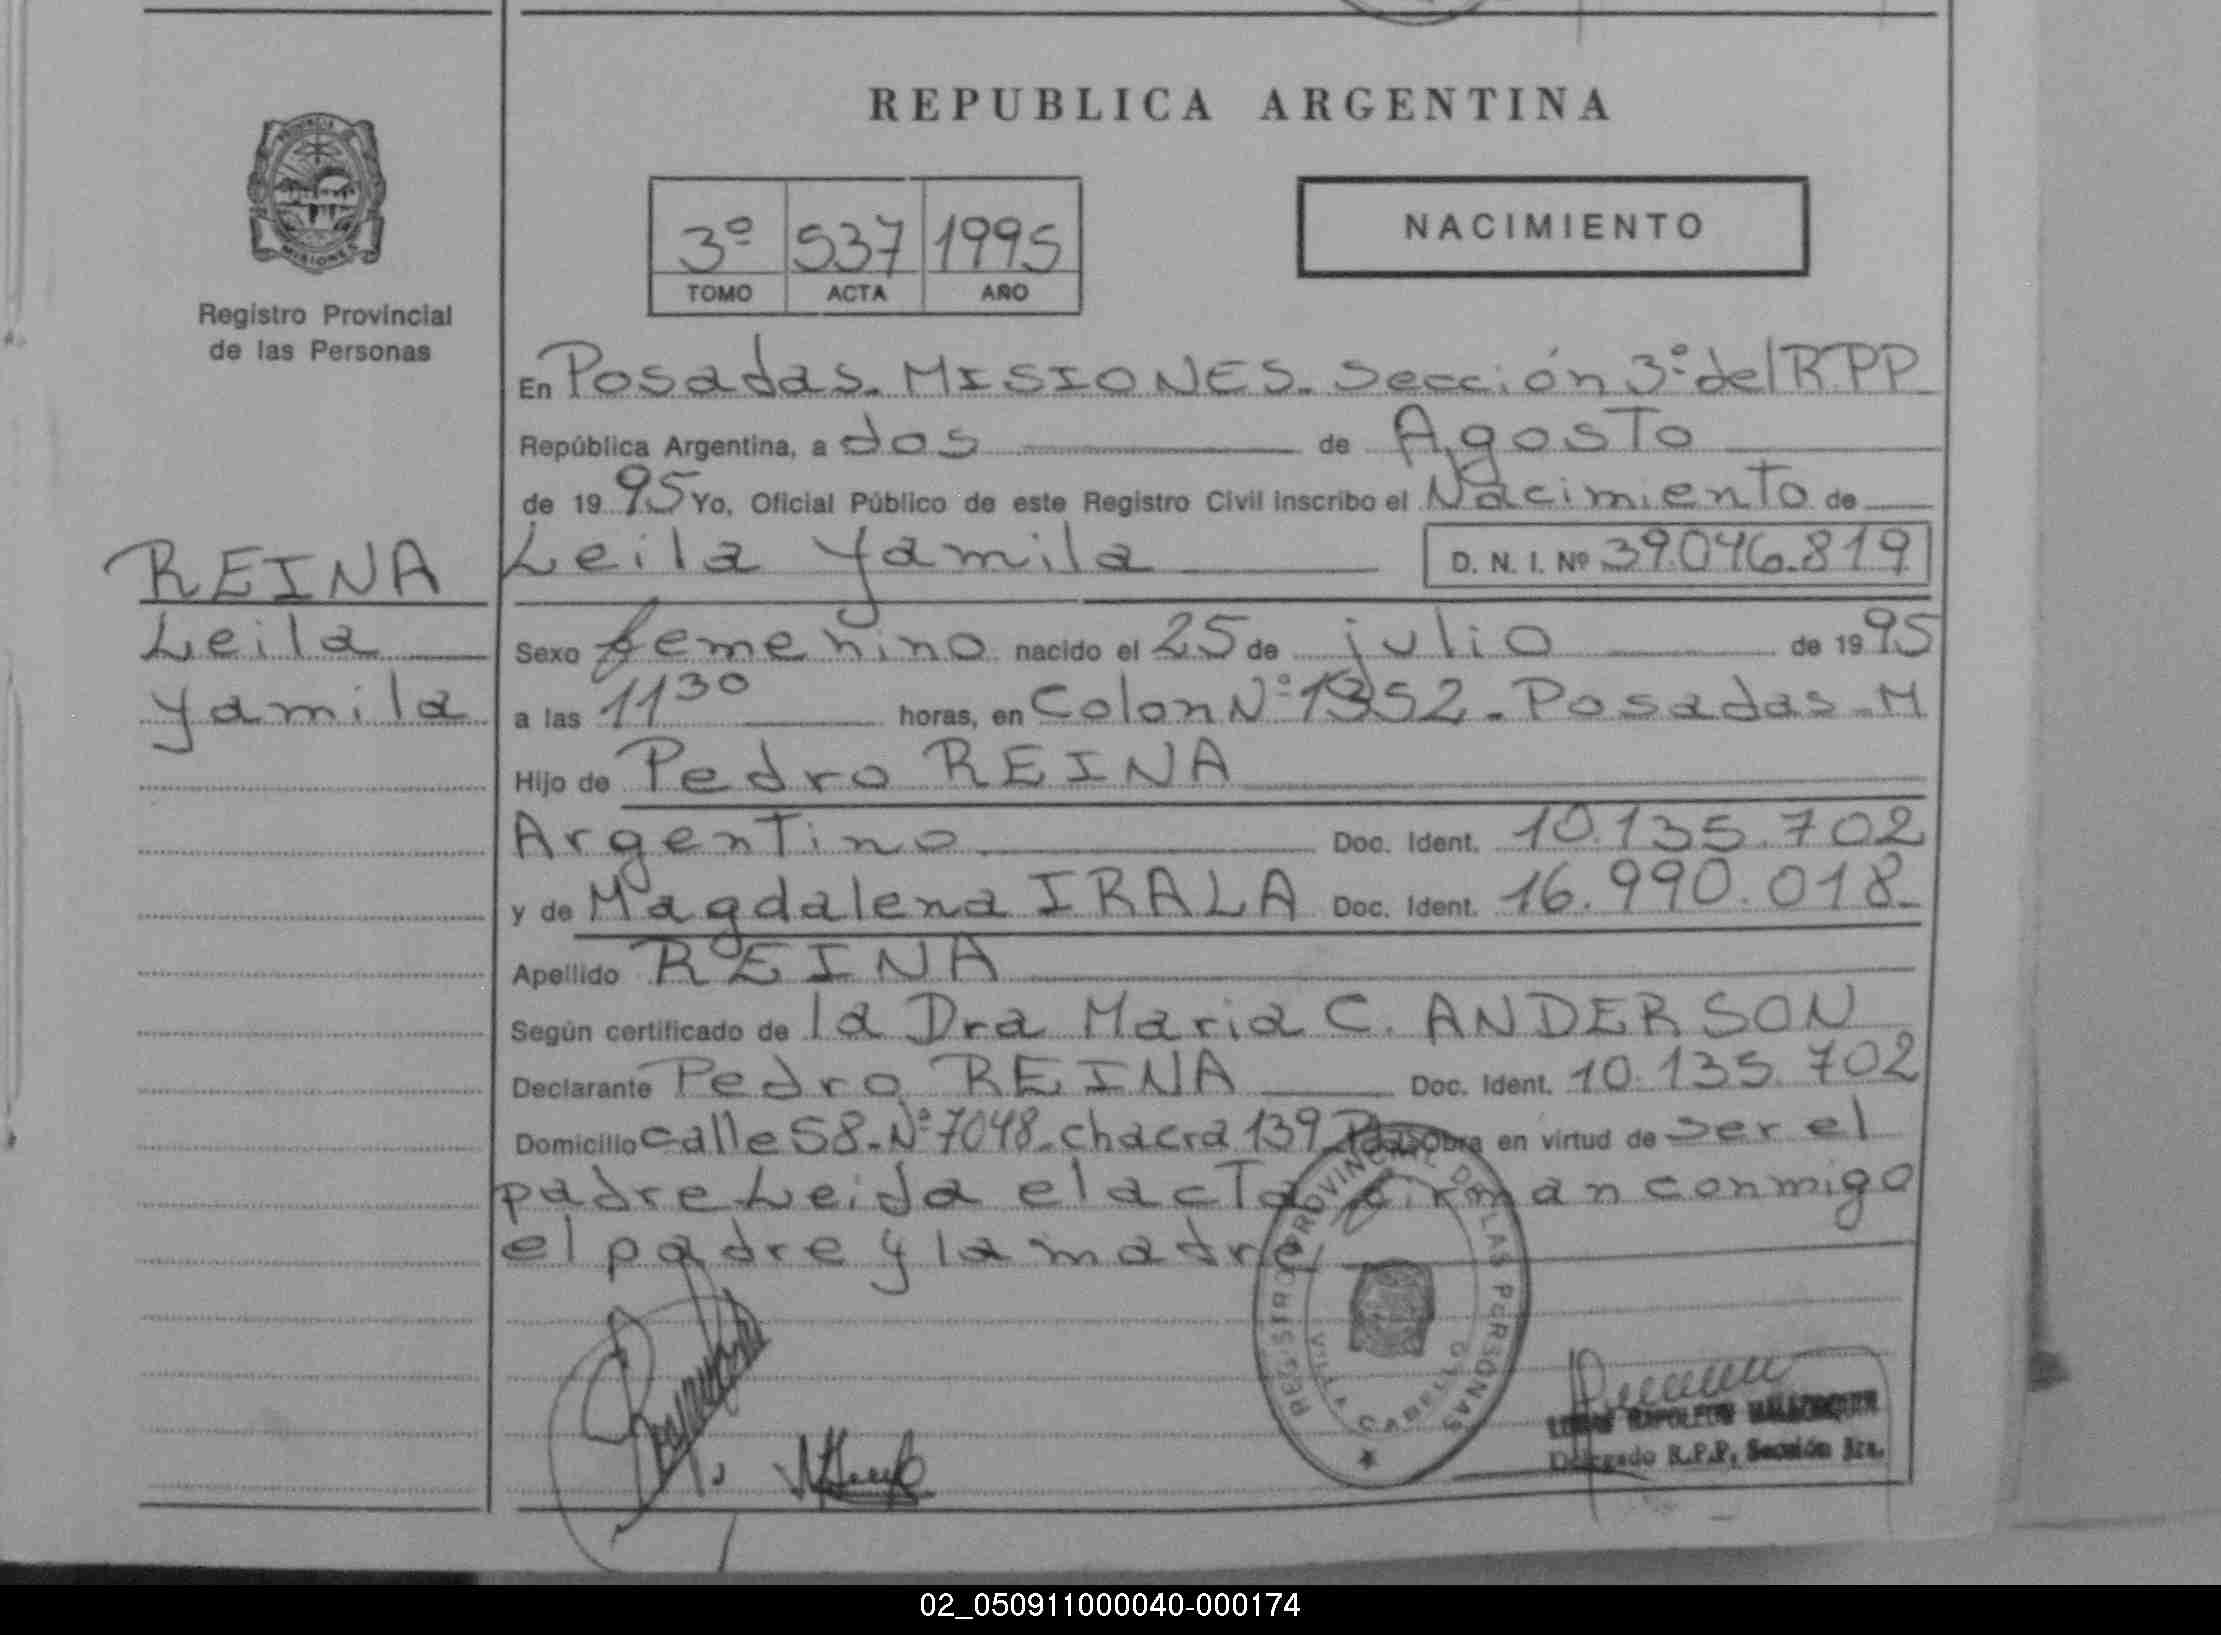 REPUBLICA ARGENTINA
PROVINCIA DE
MISIONES
Registro Provincial
de las Personas
3º 537 1995
TOMO ACTA AÑO
NACIMIENTO
En Posadas - MISIONES - Sección 3º del R.P.P
República Argentina, a dos de Agosto
de 1995 Yo, Oficial Público de este Registro Civil inscribo el Nacimiento de
Leila Yamila D. N. I. Nº 39.046.819
REINA
Leila
Yamila
Sexo femenino nacido el 25 de julio de 1995
a las 11 30 horas, en Colon Nº 1352 - Posadas - M
Hijo de Pedro REINA
Argentino Doc. Ident. 10.135.702
y de Magdalena IRALA Doc. Ident. 16.990.018-
Apellido REINA
Según certificado de la Dra Maria C. ANDERSON
Declarante Pedro REINA Doc. Ident. 10.135.702
Domicilio calle 58 - Nº 7048 - chacra 139 Pdas Obra en virtud de ser el
padre Leida el acta firman conmigo
el padre y la madre
REGISTRO PROVINCIAL DE LAS PERSONAS
VILLA CABELLO
NAPOLEON
Delegado R.P.P. Sección 3ra.
02_050911000040-000174